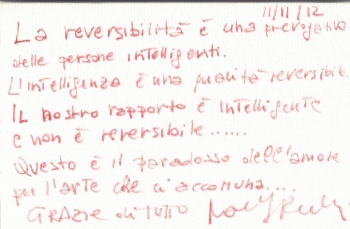 11/11/12
La reversibilità è una prerogativa
delle persone intelligenti.
L'intelligenza è una qualità reversibile
Il nostro rapporto è intelligente
e non è reversibile......
Questo è il paradosso dell'amore
per l'arte che ci accomuna....
GRAZIE di TUTTO